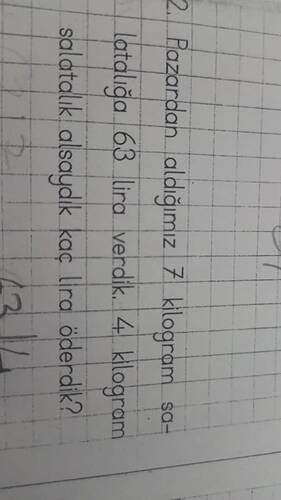 2. Pazardan aldığımız 7 kilogram sa-
latalığa 63 lira verdik. 4 kilogram
salatalık alsaydık kaç lira öderdik?